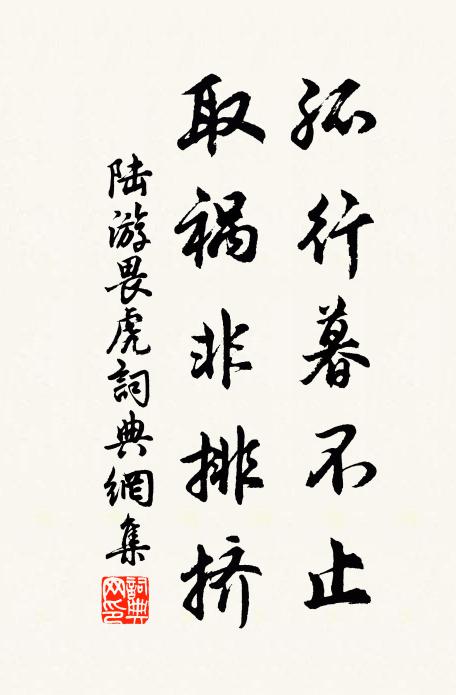 孤行暮不止
取祸非排挤
陆游畏虎詞典網集
詞典网印